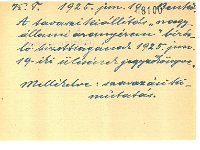 K. T. 1925. jun. 19.
8100
A tavaszi kiállítás "nagy
állami aranyérem" bírá-
ló bizottságának 1925. jun.
19-iki ülésének jegyzőkönyve.
Mellékelve: szavazási ki-
mutatás.